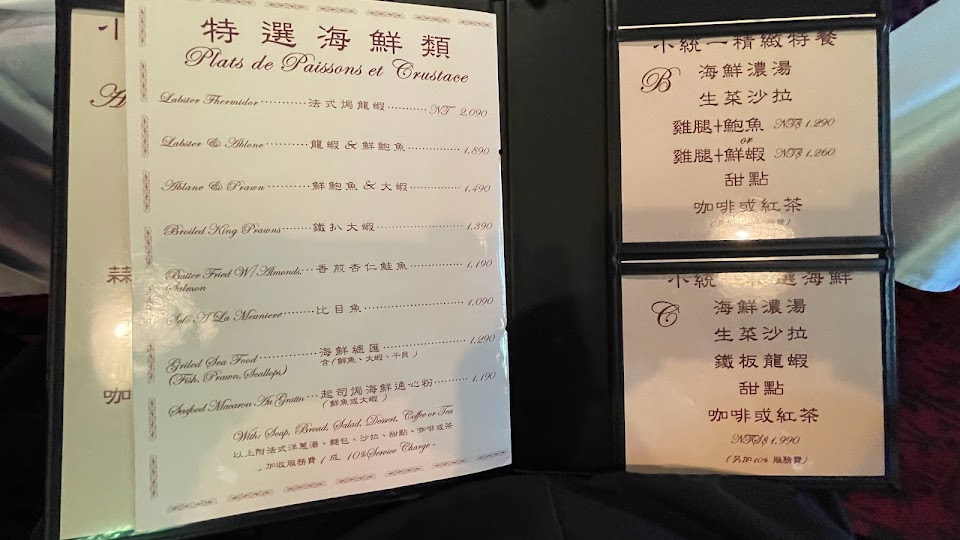 特選海鮮類
Plats de Paissons et Crustace
Labster Thermidor 法式焗龍蝦 NT 2,090
Labster & Ablone 龍蝦&鮮鮑魚 1,890
Ablane & Prawn 鮮鮑魚&大蝦 1,490
Broiled King Prawns 鐵扒大蝦 1,390
Butter Fried W/ Almonds, 香煎杏仁鮭魚 1,190
Salmon
Sole A La Meuniere 比目魚 1,090
Griled Sea Food 海鮮總匯 1,290
(Fish, Prawn, Scallops) 含(鮮魚、大蝦、干貝)
Seafood Macaron Au Gratin 起司焗海鮮通心粉 1,190
(鮮魚或大蝦)
With: Soup, Bread, Salad, Dessert, Coffee or Tea
以上附法式洋蔥湯、麵包、沙拉、甜點、咖啡或茶
- 加收服務費1成 10%Service Charge -
小統一精緻特餐
B 海鮮濃湯
生菜沙拉
雞腿+鮑魚 NT$ 1,290
or
雞腿+鮮蝦 NT$ 1,260
甜點
咖啡或紅茶
C 海鮮濃湯
生菜沙拉
鐵板龍蝦
甜點
咖啡或紅茶
NT$ 1,990
(另加10% 服務費)
蒜
咖